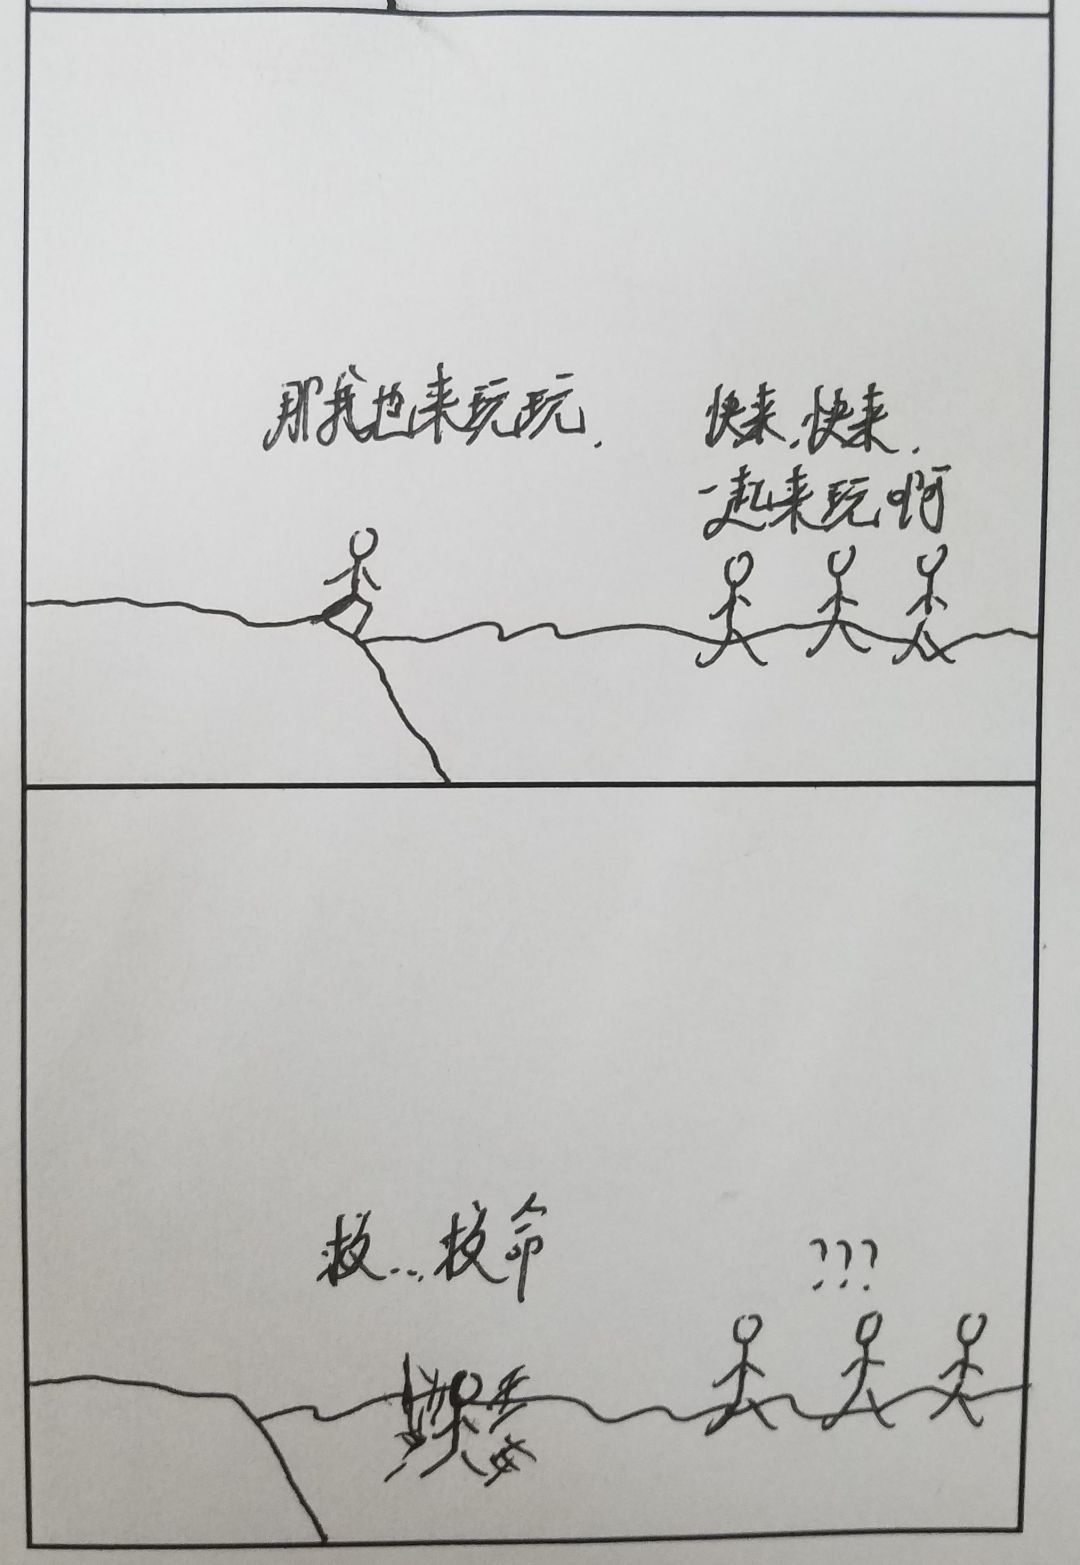 那我也来玩玩.
快来,快来.
一起来玩啊
救...救命
???